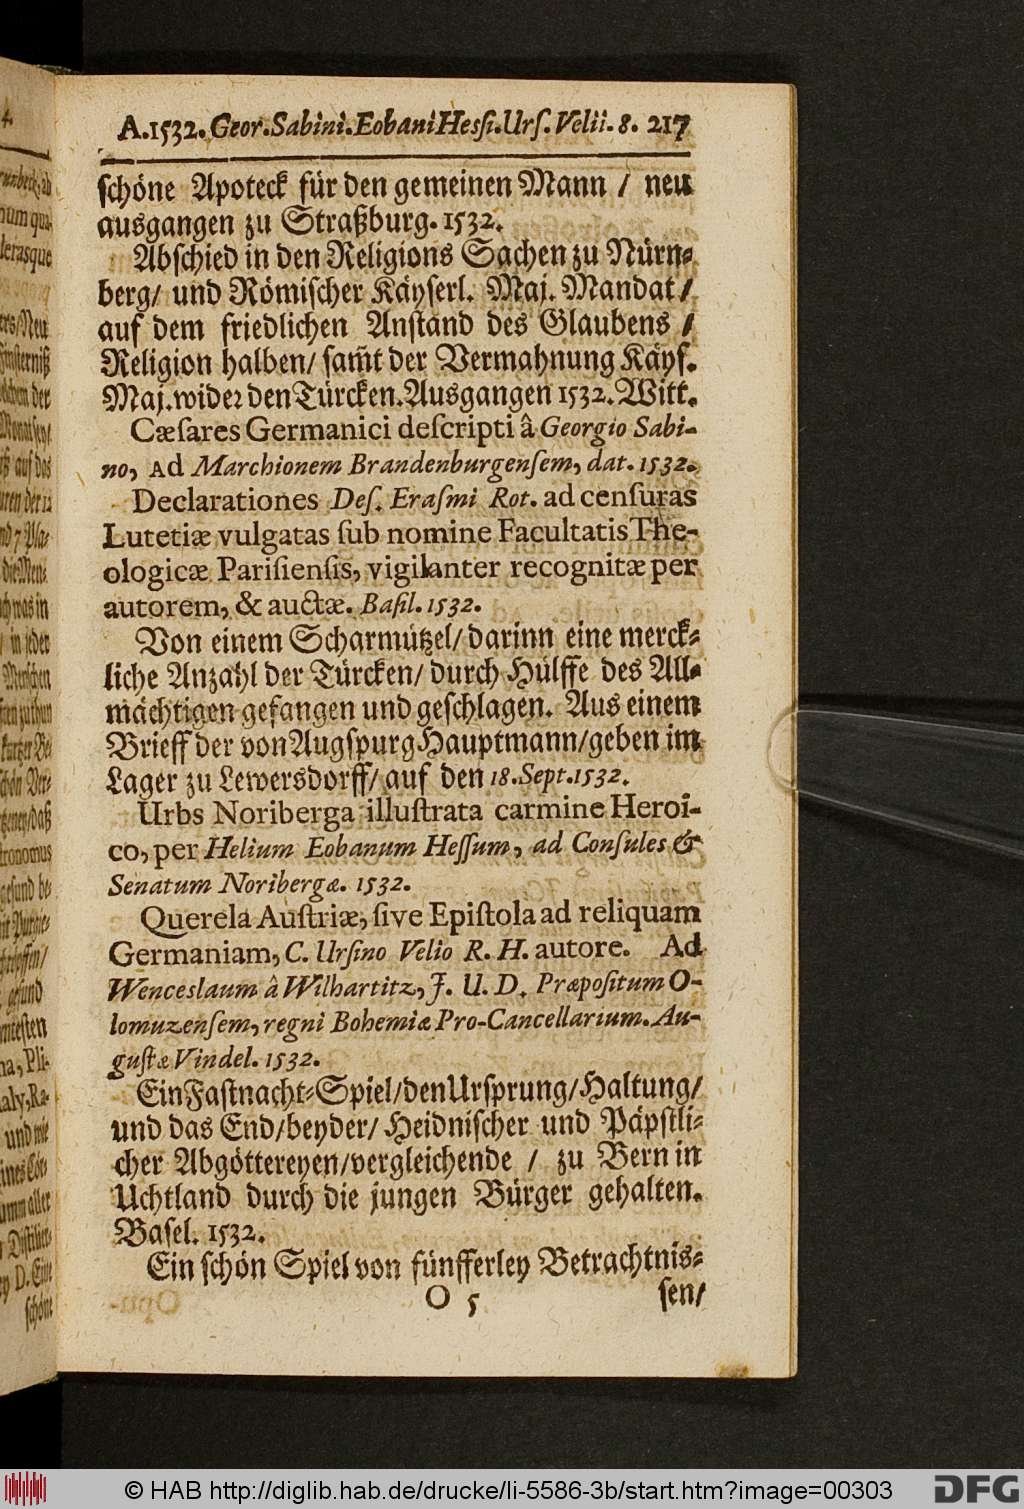 A. 1532. Geor. Sabini. Eobani Hessi. Urſ. Velii. 8. 217
ſchöne Apoteck für den gemeinen Mann / neu
ausgangen zu Straßburg. 1532.
Abſchied in den Religions Sachen zu Nürn-
berg/ und Römiſcher Käyſerl. Maj. Mandat/
auf dem friedlichen Anſtand des Glaubens /
Religion halben/ ſam̃t der Vermahnung Käyſ.
Maj. wider den Türcken. Ausgangen 1532. Witt.
Cæſares Germanici deſcripti â Georgio Sabi-
no, Ad Marchionem Brandenburgenſem, dat. 1532.
Declarationes Deſ. Eraſmi Rot. ad cenſuras
Lutetiæ vulgatas ſub nomine Facultatis The-
ologicæ Pariſienſis, vigilanter recognitæ per
autorem, & auctæ. Baſil. 1532.
Von einem Scharmützel/ darinn eine merck-
liche Anzahl der Türcken/ durch Hülffe des All-
mächtigen gefangen und geſchlagen. Aus einem
Brieff der von Augſpurg Hauptmann/geben im
Lager zu Lewersdorff/ auf den 18. Sept. 1532.
Urbs Noriberga illuſtrata carmine Heroi-
co, per Helium Eobanum Heſſum, ad Conſules &
Senatum Noribergæ. 1532.
Querela Auſtriæ, ſive Epiſtola ad reliquam
Germaniam, C. Urſino Velio R. H. autore. Ad
Wenceslaum â Wilhartitz, J. U. D. Præpoſitum O-
lomuzenſem, regni Bohemiæ Pro-Cancellarium. Au-
guſtæ Vindel. 1532.
Ein Faſtnacht-Spiel/den Urſprung/Haltung/
und das End/beyder/ Heidniſcher und Päpſtli-
cher Abgöttereyen/vergleichende / zu Bern in
Uchtland durch die jungen Bürger gehalten.
Baſel. 1532.
Ein ſchön Spiel von fünfferley Betrachtniſ-
O 5 ſen/
© HAB http://diglib.hab.de/drucke/li-5586-3b/start.htm?image=00303
DFG